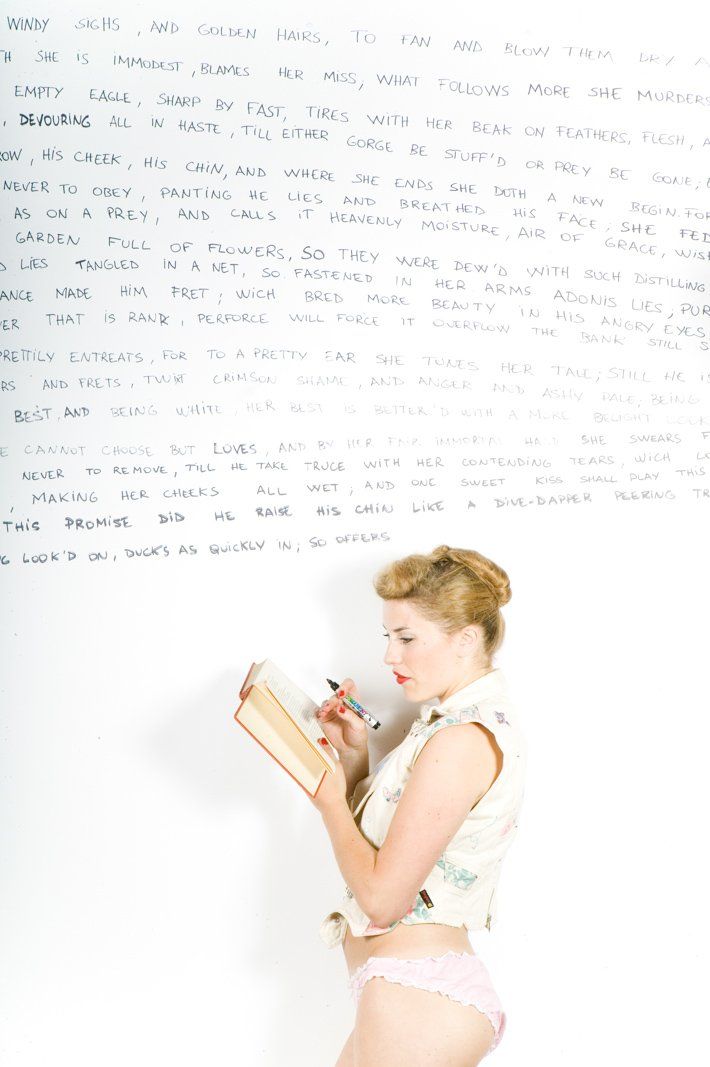 WINDY SIGHS , AND GOLDEN HAIRS, TO FAN AND BLOW THEM DRY A
TH SHE IS IMMODEST , BLAMES HER MISS, WHAT FOLLOWS MORE SHE MURDERS
EMPTY EAGLE, SHARP BY FAST, TIRES WITH HER BEAK ON FEATHERS, FLESH, A
, DEVOURING ALL IN HASTE , TILL EITHER GORGE BE STUFF'D OR PREY BE GONE;
ROW , HIS CHEEK , HIS CHIN, AND WHERE SHE ENDS SHE DOTH A NEW BEGIN. FOR
NEVER TO OBEY , PANTING HE LIES AND BREATHED HIS FACE ; SHE FED
AS ON A PREY, AND CALLS IT HEAVENLY MOISTURE, AIR OF GRACE, WISH
GARDEN FULL OF FLOWERS, SO THEY WERE DEW'D WITH SUCH DISTILLING
D LIES TANGLED IN A NET, SO FASTENED IN HER ARMS ADONIS LIES ; PUR
ANCE MADE HIM FRET ; WICH BRED MORE BEAUTY IN HIS ANGRY EYES
VER THAT IS RANK , PERFORCE WILL FORCE IT OVERFLOW THE BANK STILL S
PRETTILY ENTREATS , FOR TO A PRETTY EAR SHE TUNES HER TALE; STILL HE IS
RS AND FRETS, TWIXT CRIMSON SHAME, AND ANGER AND ASHY PALE; BEING
BEST, AND BEING WHITE , HER BEST IS BETTER'D WITH A MORE DELIGHT LOOK
E CANNOT CHOOSE BUT LOVES, AND BY HER FAIR IMMORTAL HAND SHE SWEARS F
NEVER TO REMOVE, TILL HE TAKE TRUCE WITH HER CONTENDING TEARS, WICH LO
, MAKING HER CHEEKS ALL WET ; AND ONE SWEET KISS SHALL PLAY THIS
THIS PROMISE DID HE RAISE HIS CHIN LIKE A DIVE-DAPPER PEERING TR
G LOOK'D ON, DUCKS AS QUICKLY IN; SO OFFERS